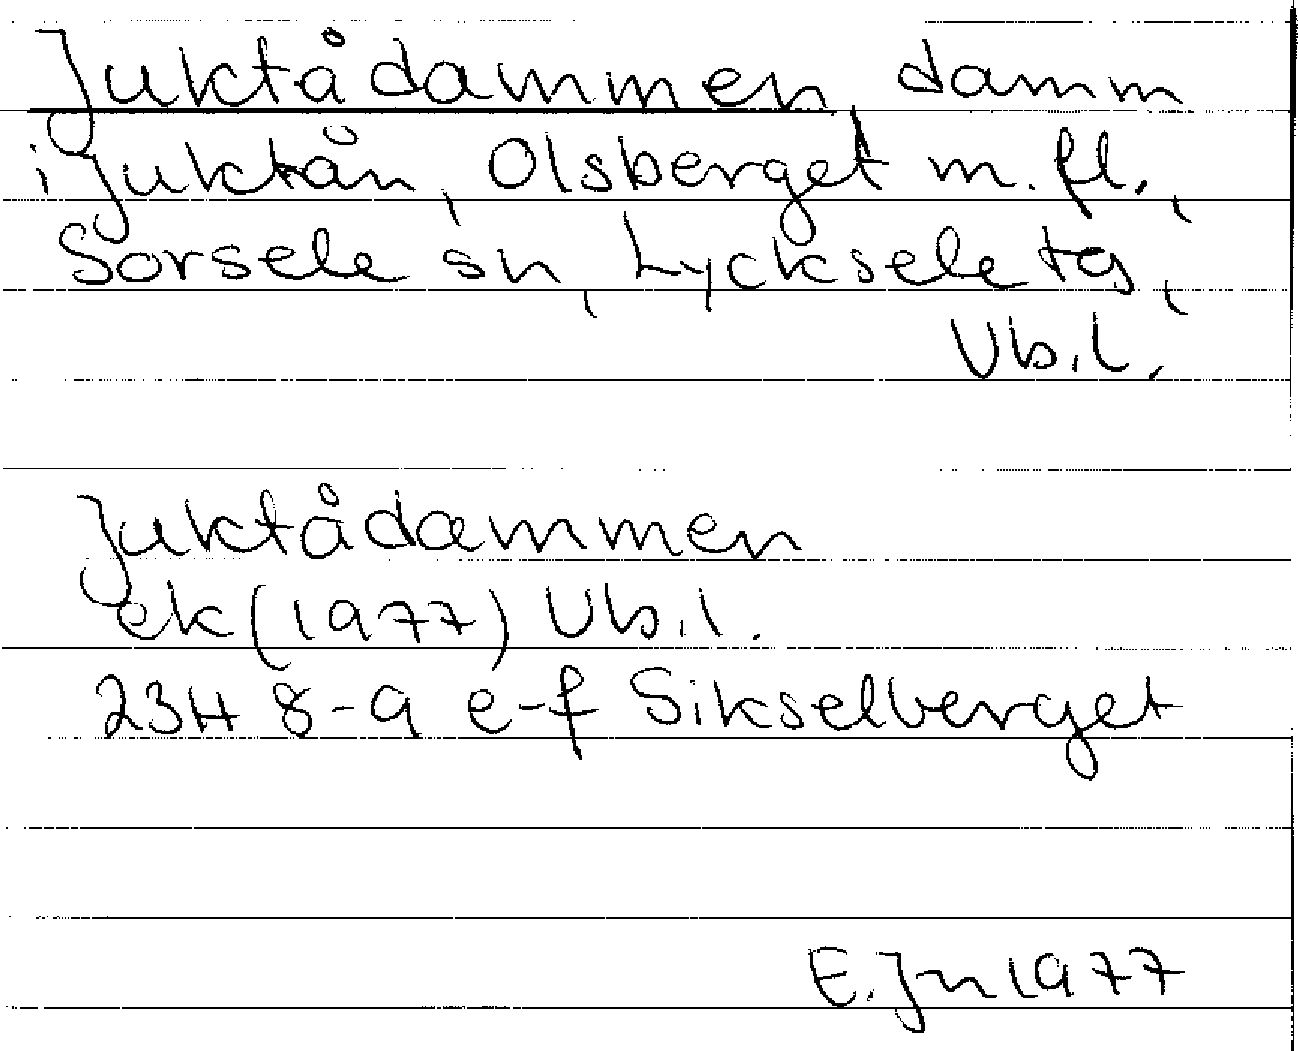 Juktådammen, damm
i Juktån, Olsberget m.fl.,
Sorsele sn, Lycksele tg,
Vb.l.
Juktådammen
ek (1977) Vb.l.
23H 8-9 e-f Sikselberget
E. Jn 1977